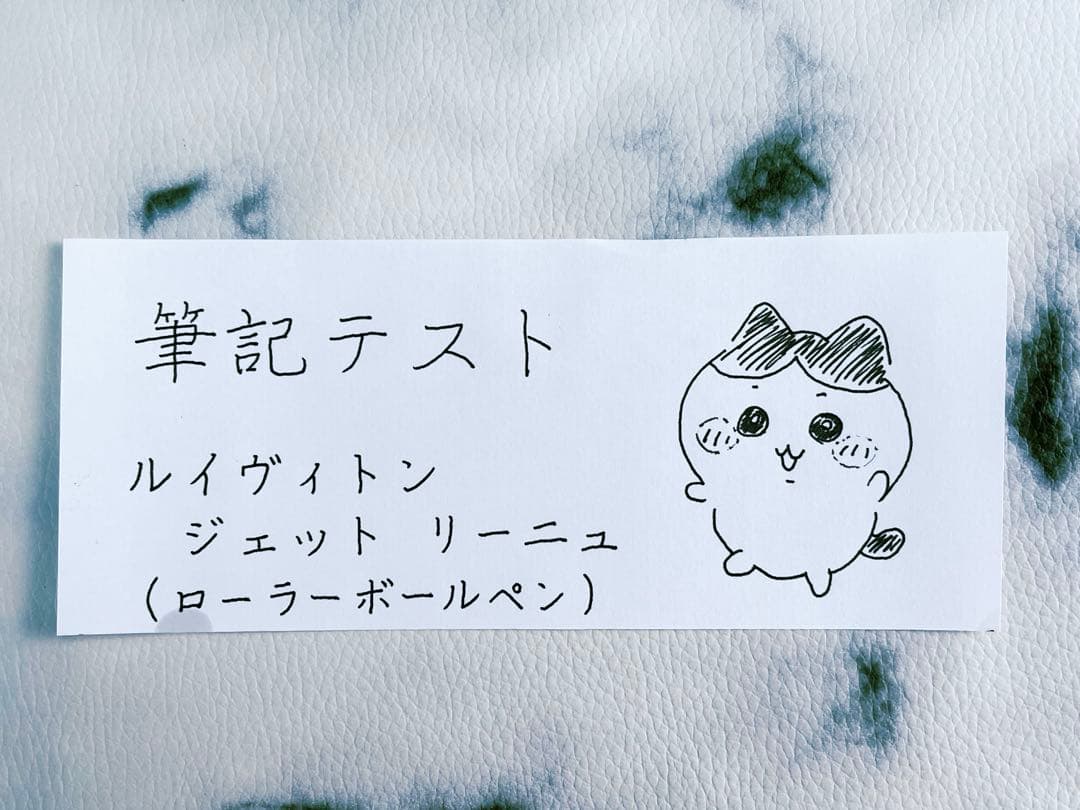 筆記テスト
ルイヴィトン
ジェット リーニュ
(ローラーボールペン)